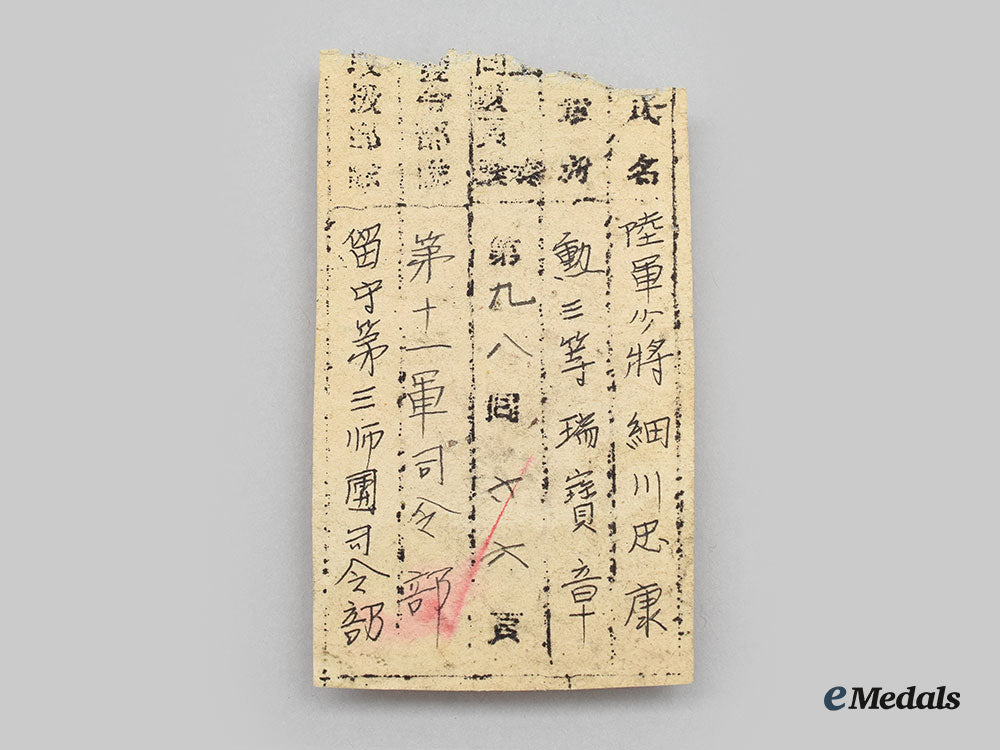 氏名
陸軍少將 細川忠康
勳三等瑞寶章
第九八回 六六頁
第十一軍司令部
取扱部隊
留守第三師團司令部
eMedals